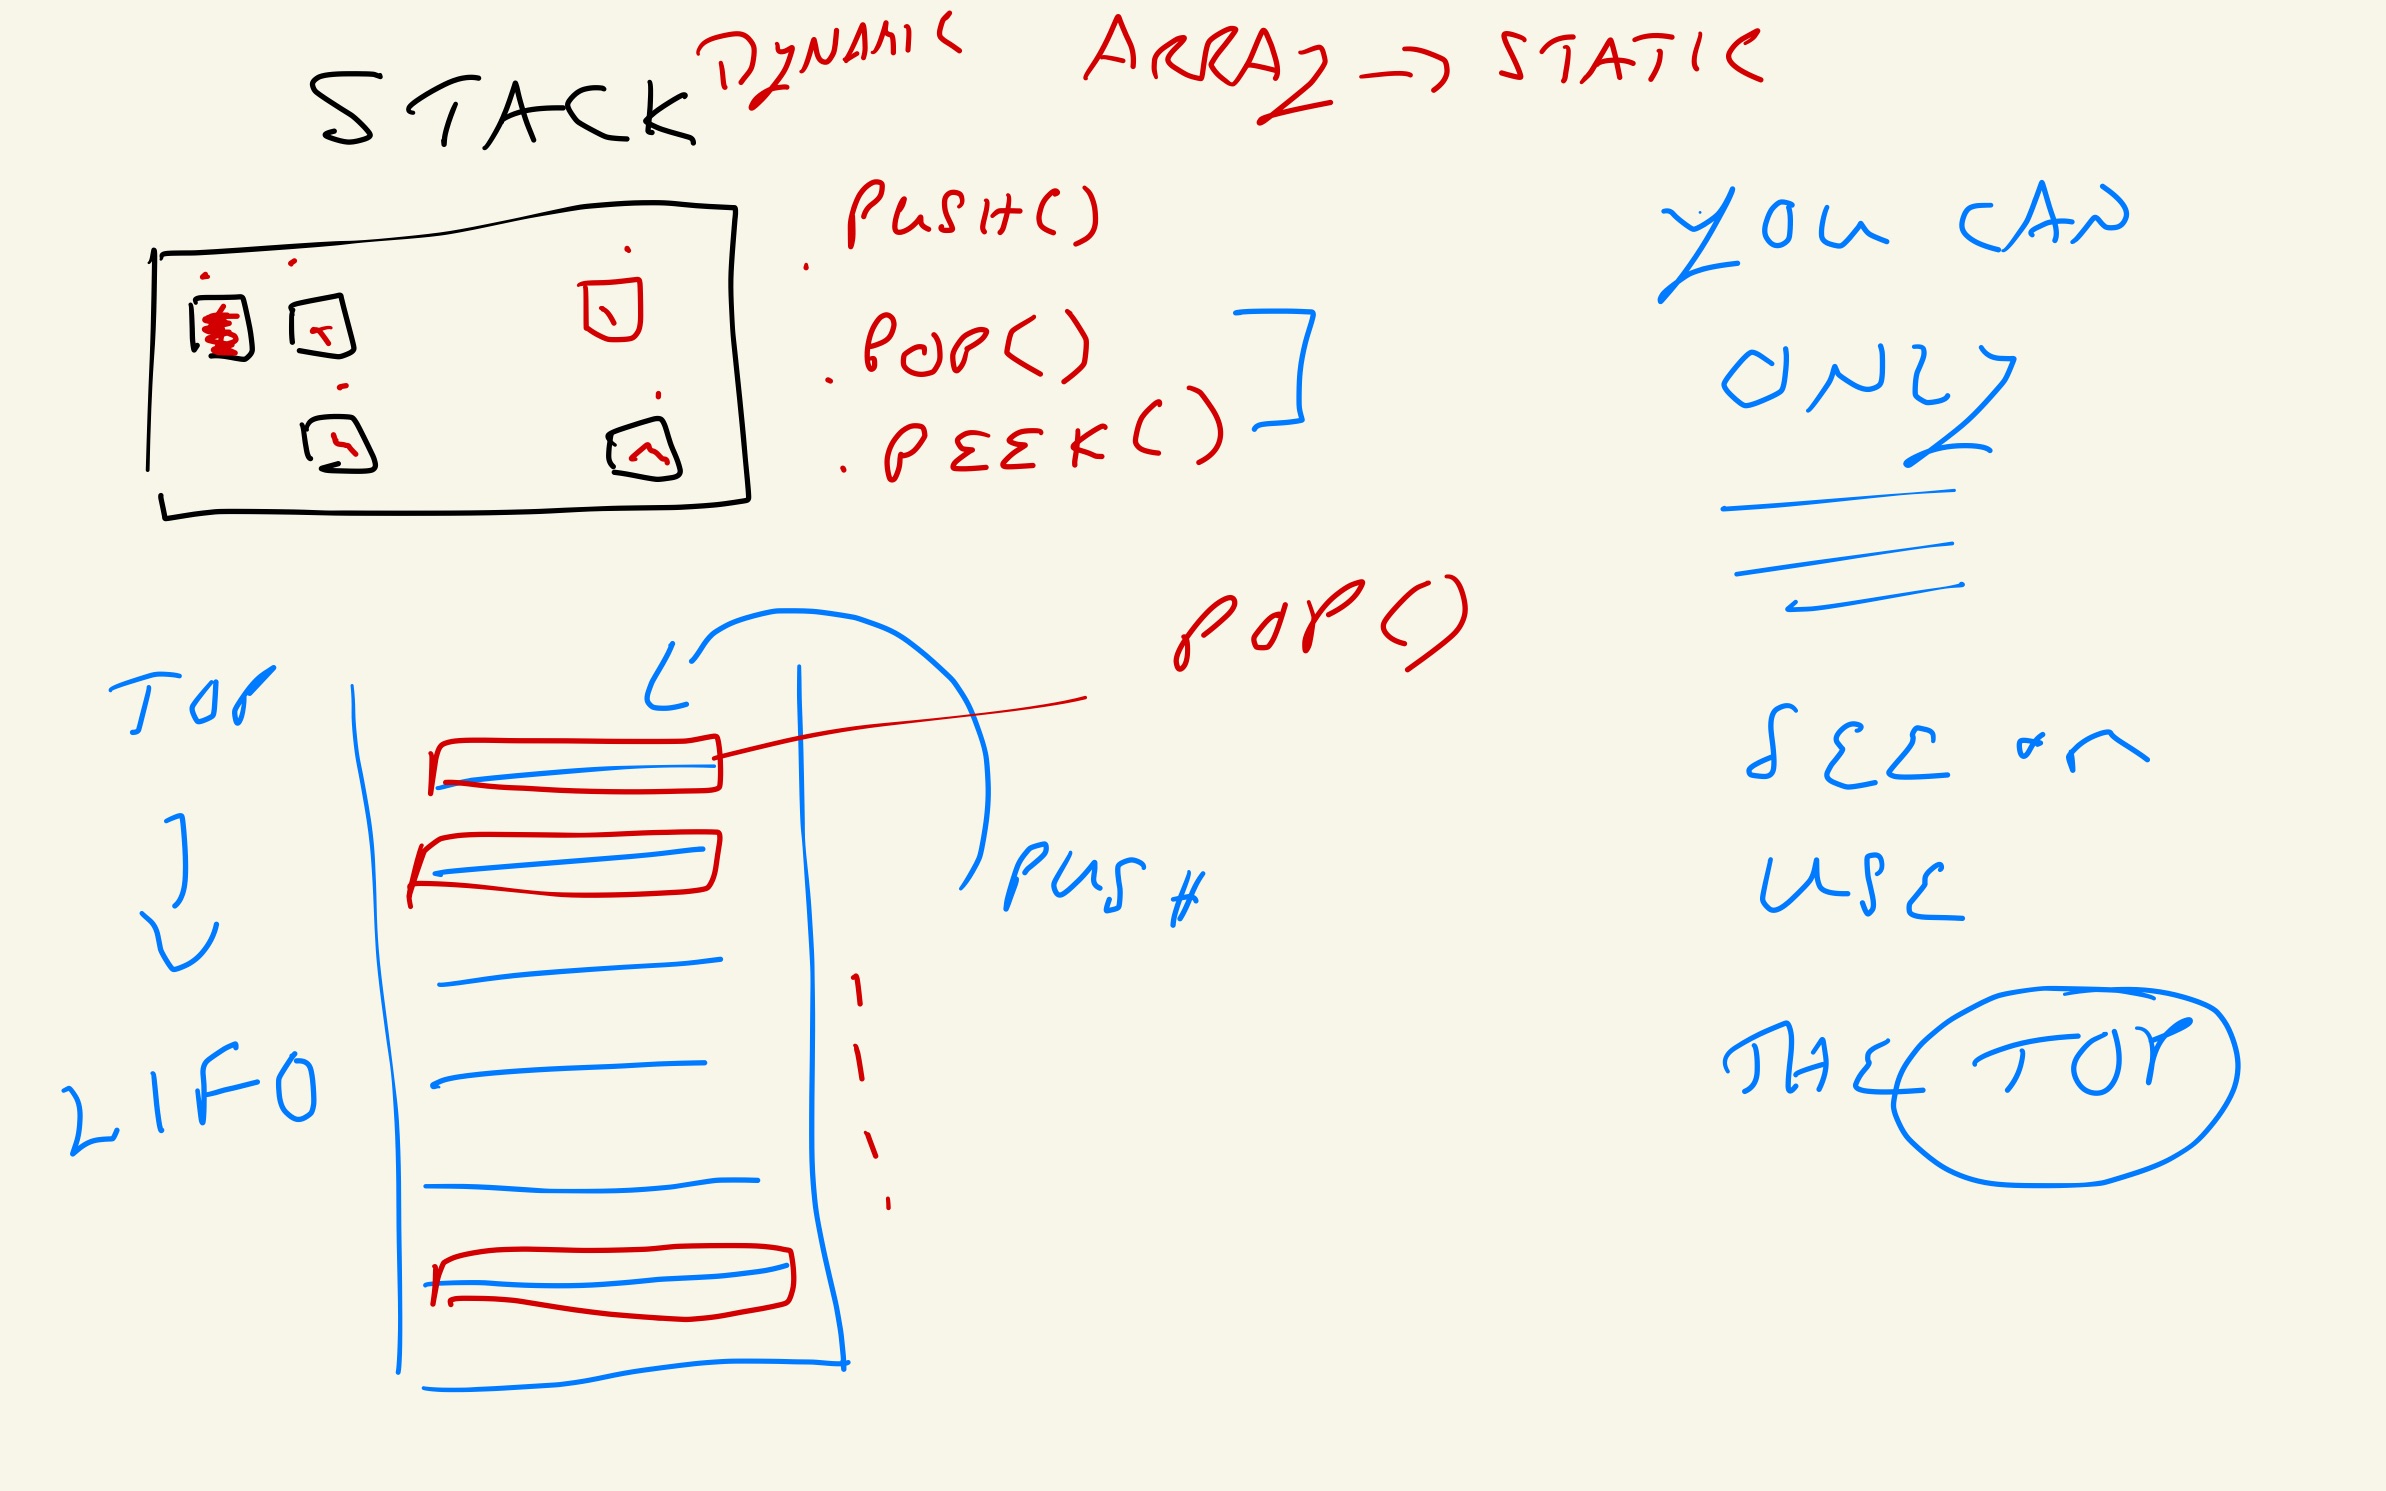 STACK DYNAMIC ARRAY → STATIC
PUSH()
POP()
PEEK()
YOU CAN
ONLY
SEE OR
USE
THE TOP
POP()
TOP
PUSH
LIFO